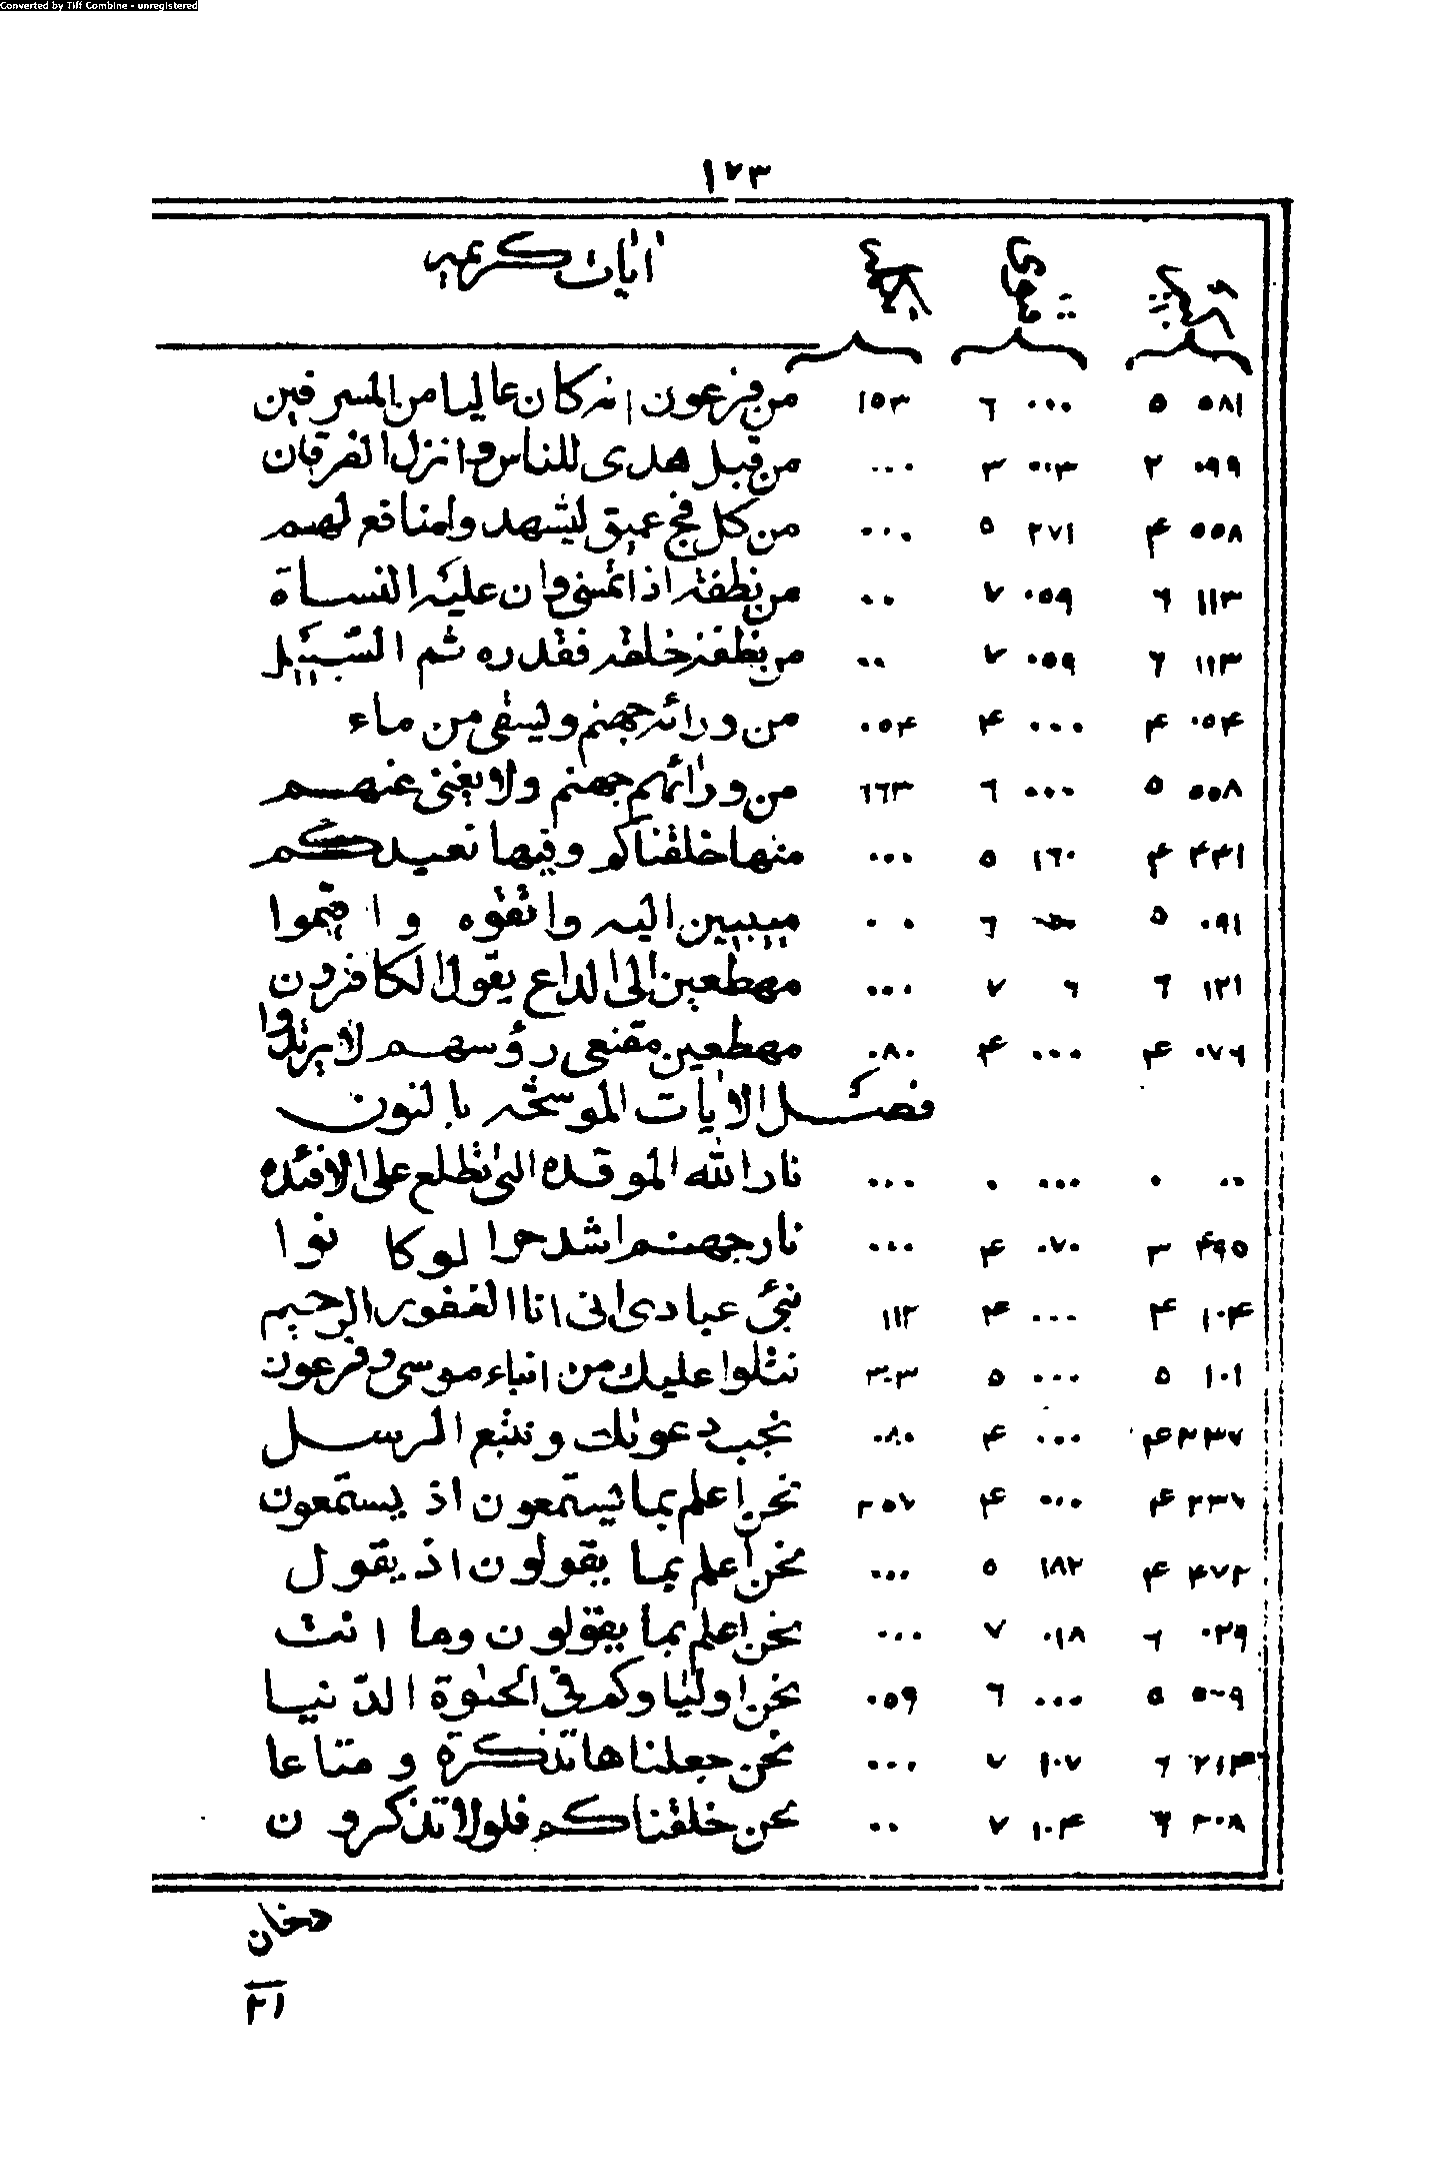 Converted by Tiff Combine - unregistered
١٢٣
اٰیات کریمه
٥٨١ ٥ ٠٠٠ ٦ ١٥٣ من فرعون انه کان عالیا من المسرفین
٠٩٩ ٢ ٠١٣ ٣ ٠٠٠ من قبل هدی للناس و انزل الفرقان
٥٥٨ ۴ ٢٧١ ٥ ٠٠٠ من کل فج عمیق لیشهد وا منافع لهم
١١٣ ٦ ٠٥٩ ٧ ٠٠ من نطفة اذا تمنی و ان علیه النساة
١١٣ ٦ ٠٥٩ ٧ ٠٠ من نطفة خلقه فقدره ثم السبیل
٠٥۴ ۴ ٠٠٠ ۴ ٠٥۴ من ورائه جهنم و یسقی من ماء
٥٥٨ ٥ ٠٠٠ ٦ ٦٦٣ من ورائهم جهنم ولا یغنی عنهم
۴۴١ ۴ ١٦٠ ٥ ٠٠٠ منها خلقناکم و فیها نعیدکم
٠٩١ ٥ ٦ ٠ ٠ منیبین الیه واتقوه و اقیموا
١٢١ ٦ ٦ ٧ ٠٠٠ مهطعین الی الداع یقول الکافرون
٠٧٦ ۴ ٠٠٠ ۴ ٠٨٠ مهطعین مقنعی رؤسهم لا یرتد وا
فصل الایات الموشحه بالنون
٠٠ ٠ ٠٠٠ ٠ ٠٠٠ نار الله الموقده التی تطلع علی الافئده
۴٩٥ ٣ ٠٧٠ ۴ ٠٠٠ نار جهنم اشد حرا لو کا نوا
١٠۴ ۴ ٠٠٠ ۴ ١١٢ نبئ عبادی انی انا الغفور الرحیم
١٠١ ٥ ٠٠٠ ٥ ٣٠٣ نتلوا علیك من انباء موسی و فرعون
٣٣٧ ۴ ٠٠٠ ۴ ٠٨٠ نجب دعوتك و نتبع الرسل
٣٣٧ ۴ ٠٠٠ ۴ ٢٥٧ نحن اعلم بما یستمعون اذ یستمعون
۴٧٢ ۴ ١٨٢ ٥ ٠٠٠ نحن اعلم بما یقولون اذ یقول
٠٢٩ ٦ ٠١٨ ٧ ٠٠٠ نحن اعلم بما یقولون وما انت
٥٠٩ ٥ ٠٠٠ ٦ ٠٥٩ نحن اولیاوکم فی الحیٰوة الدّنیا
٢١۴ ٦ ١٠٧ ٧ ٠٠٠ نحن جعلناها تذکرة و متاعا
٢٠٨ ٦ ١٠۴ ٧ ٠٠ نحن خلقناکم فلولا تذکرون
دخان
٢١